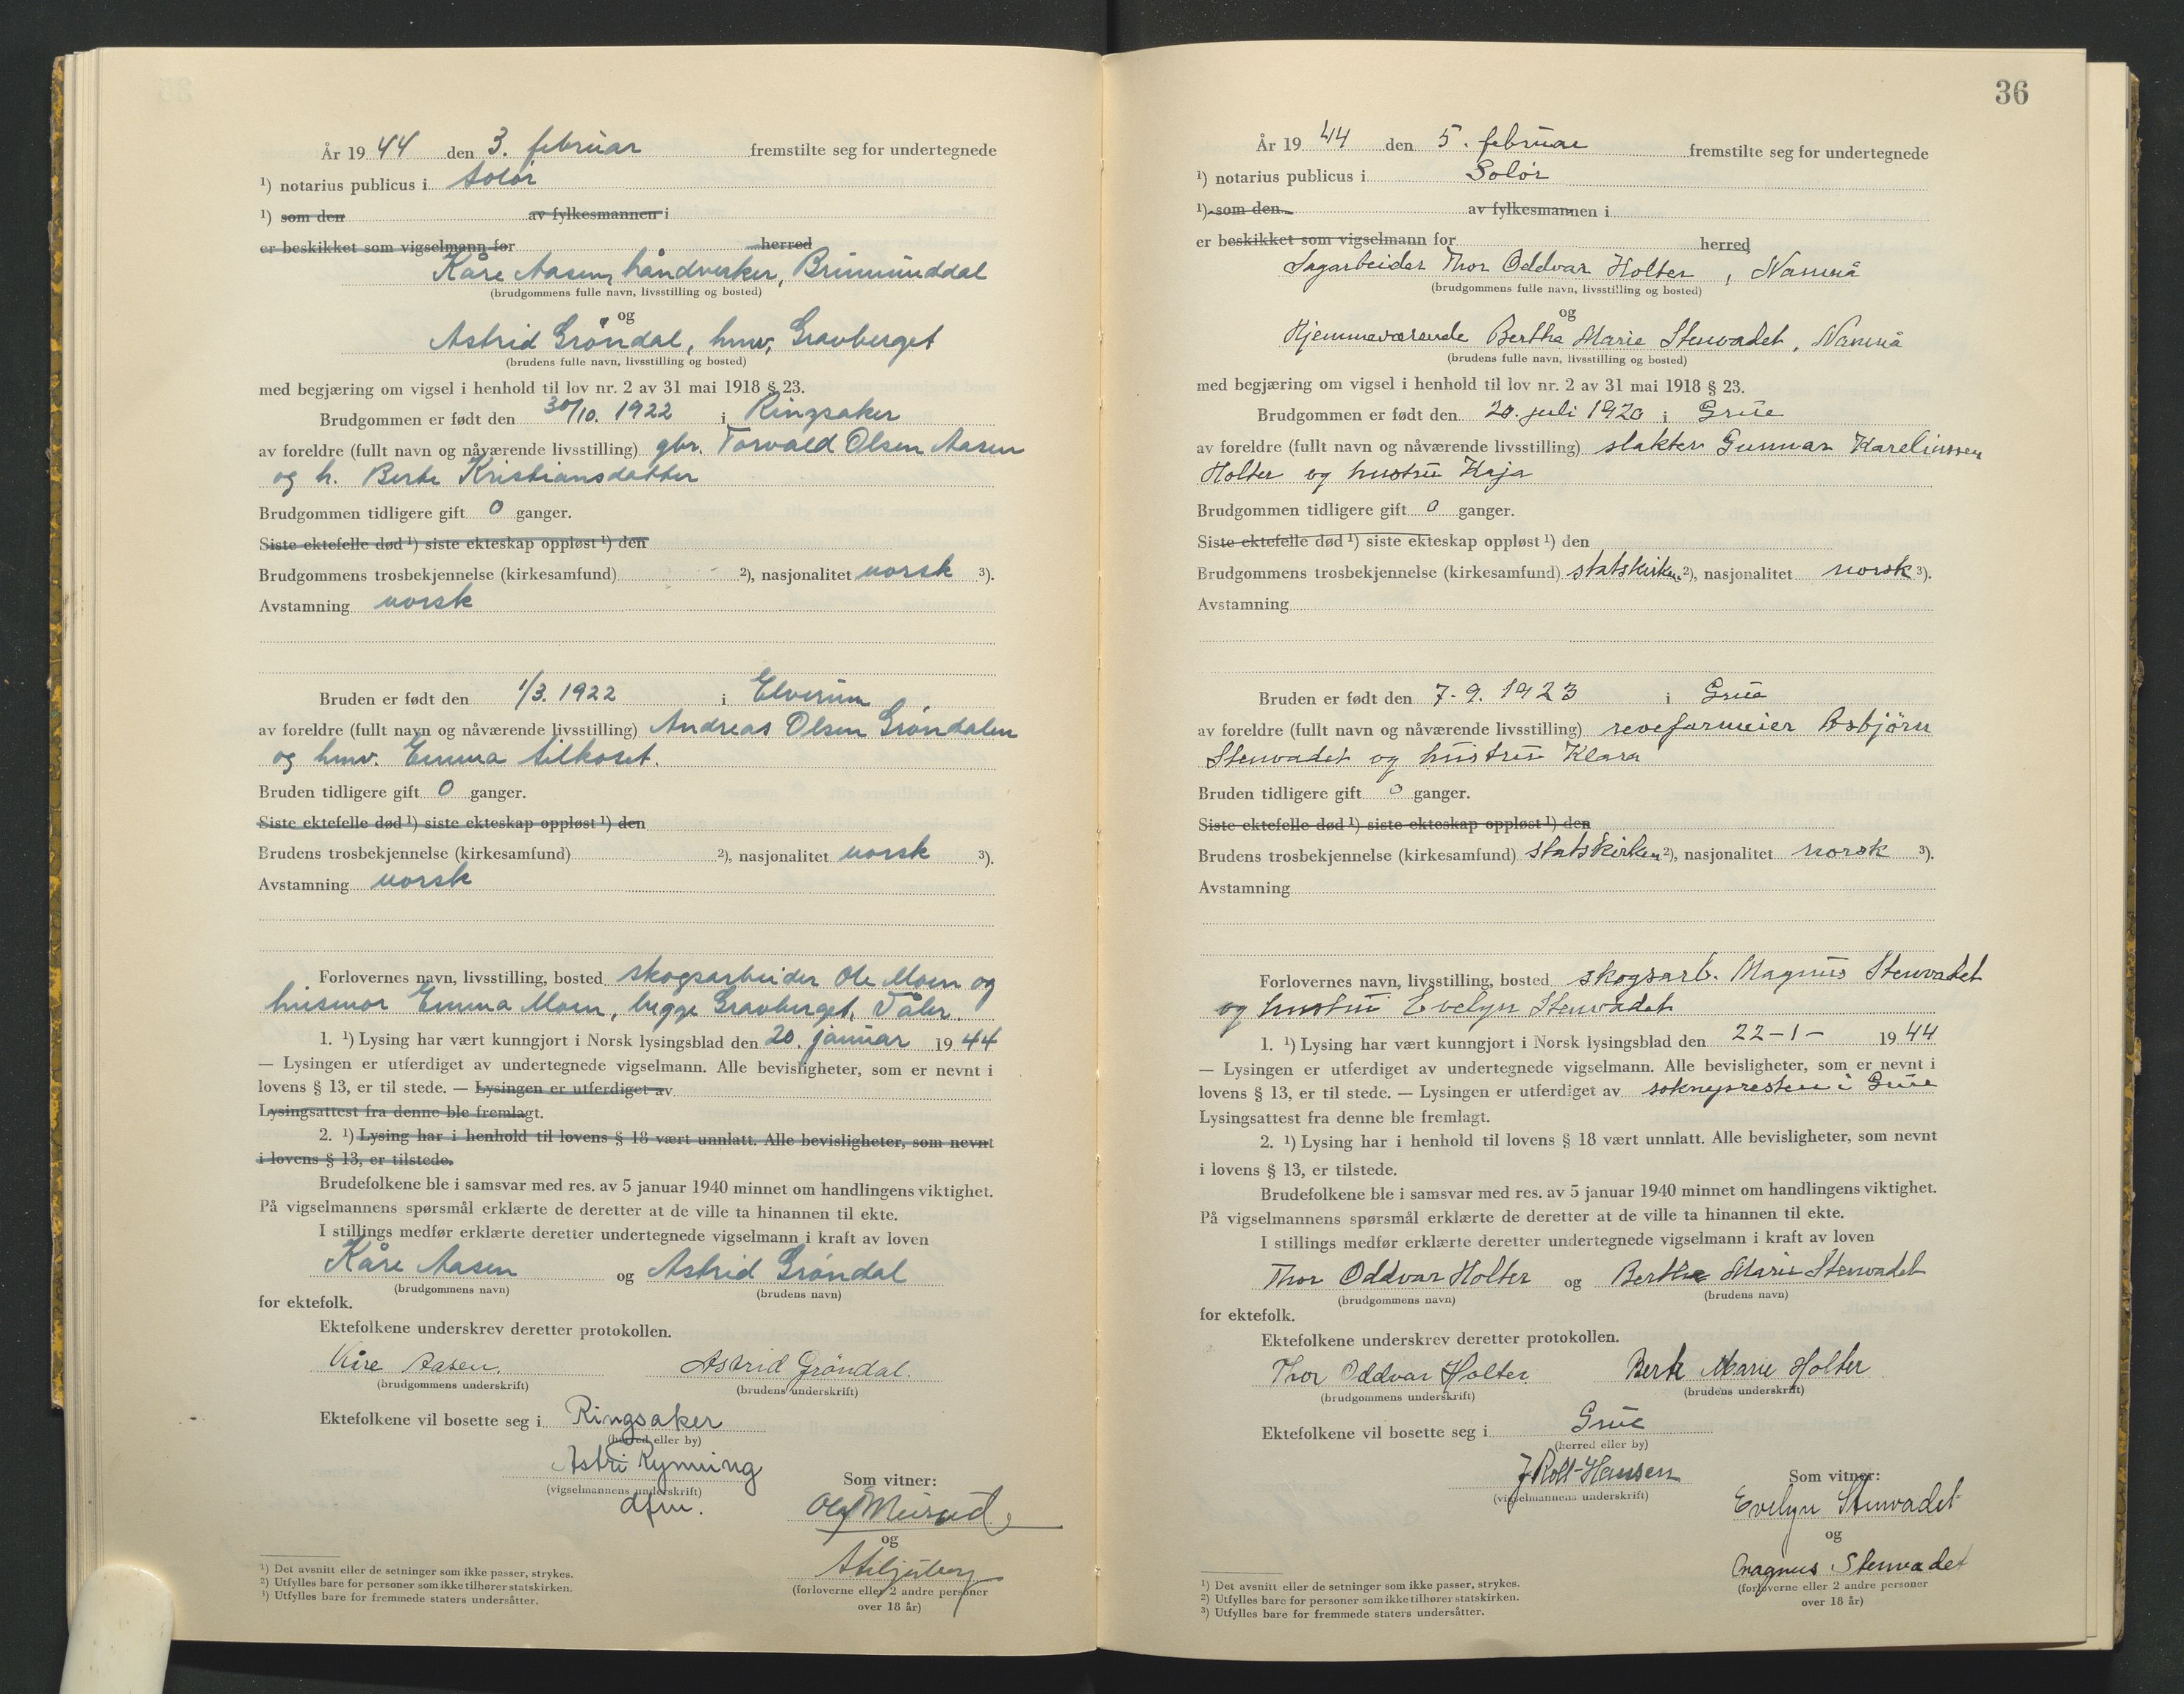 År 1944 den 3. februar fremstilte seg for undertegnede
¹) notarius publicus i Solør
¹) som den av fylkesmannen i
er beskikket som vigselmann for herred
Kåre Aasen, håndverker, Brumunddal
(brudgommens fulle navn, livsstilling og bosted)
og
Astrid Grøndal, hmv, Gravberget
(brudens fulle navn, livsstilling og bosted)
med begjæring om vigsel i henhold til lov nr. 2 av 31 mai 1918 § 23.
Brudgommen er født den 30/10. 1922 i Ringsaker
av foreldre (fullt navn og nåværende livsstilling) gbr. Torvald Olsen Aasen
og h. Berte Kristiansdatter
Brudgommen tidligere gift 0 ganger.
Siste ektefelle død ¹) siste ekteskap oppløst ¹) den
Brudgommens trosbekjennelse (kirkesamfund) ²), nasjonalitet norsk ³).
Avstamning norsk
Bruden er født den 1/3. 1922 i Elverum
av foreldre (fullt navn og nåværende livsstilling) Andreas Olsen Grøndalen
og hmv. Emma
Bruden tidligere gift 0 ganger.
Siste ektefelle død ¹) siste ekteskap oppløst ¹) den
Brudens trosbekjennelse (kirkesamfund) ²), nasjonalitet norsk ³).
Avstamning norsk
Forlovernes navn, livsstilling, bosted skogsarbeider Ole Moen og
husmor Emma Moen, begge Gravberget, Våler.
1. ¹) Lysing har vært kunngjort i Norsk lysingsblad den 20. januar 1944
— Lysingen er utferdiget av undertegnede vigselmann. Alle bevisligheter, som er nevnt i
lovens § 13, er til stede. — Lysingen er utferdiget av
Lysingsattest fra denne ble fremlagt.
2. ¹) Lysing har i henhold til lovens § 18 vært unnlatt. Alle bevisligheter, som nevnt
i lovens § 13, er tilstede.
Brudefolkene ble i samsvar med res. av 5 januar 1940 minnet om handlingens viktighet.
På vigselmannens spørsmål erklærte de deretter at de ville ta hinannen til ekte.
I stillings medfør erklærte deretter undertegnede vigselmann i kraft av loven
Kåre Aasen og Astrid Grøndal
(brudgommens navn) (brudens navn)
for ektefolk.
Ektefolkene underskrev deretter protokollen.
Kåre Aasen. Astrid Grøndal.
(brudgommens underskrift) (brudens underskrift)
Ektefolkene vil bosette seg i Ringsaker
(herred eller by)
Astri Rynning
(vigselmannens underskrift)
dfm.
Som vitner:
Olaf
og
(forloverne eller 2 andre personer
over 18 år)
¹) Det avsnitt eller de setninger som ikke passer, strykes.
²) Utfylles bare for personer som ikke tilhører statskirken.
³) Utfylles bare for fremmede staters undersåtter.
36
År 1944 den 5. februar fremstilte seg for undertegnede
¹) notarius publicus i Solør
¹) som den av fylkesmannen i
er beskikket som vigselmann for herred
Sagarbeider Thor Oddvar Holter, Namnå
(brudgommens fulle navn, livsstilling og bosted)
og
Hjemmeværende Bertha Marie Stenvadet, Namnå
(brudens fulle navn, livsstilling og bosted)
med begjæring om vigsel i henhold til lov nr. 2 av 31 mai 1918 § 23.
Brudgommen er født den 20. juli 1920 i Grue
av foreldre (fullt navn og nåværende livsstilling) slakter Gunnar Kareliussen
Holter og hustru Kaja
Brudgommen tidligere gift 0 ganger.
Siste ektefelle død ¹) siste ekteskap oppløst ¹) den
Brudgommens trosbekjennelse (kirkesamfund) statskirken ²), nasjonalitet norsk ³).
Avstamning
Bruden er født den 7.9.1923 i Grue
av foreldre (fullt navn og nåværende livsstilling) revefarmeier Asbjørn
Stenvadet og hustru Klara
Bruden tidligere gift 0 ganger.
Siste ektefelle død ¹) siste ekteskap oppløst ¹) den
Brudens trosbekjennelse (kirkesamfund) statskirken ²), nasjonalitet norsk ³).
Avstamning
Forlovernes navn, livsstilling, bosted skogsarb. Magnus Stenvadet
og hustru Evelyn Stenvadet
1. ¹) Lysing har vært kunngjort i Norsk lysingsblad den 22-1- 1944
— Lysingen er utferdiget av undertegnede vigselmann. Alle bevisligheter, som er nevnt i
lovens § 13, er til stede. — Lysingen er utferdiget av soknepresten i Grue
Lysingsattest fra denne ble fremlagt.
2. ¹) Lysing har i henhold til lovens § 18 vært unnlatt. Alle bevisligheter, som nevnt
i lovens § 13, er tilstede.
Brudefolkene ble i samsvar med res. av 5 januar 1940 minnet om handlingens viktighet.
På vigselmannens spørsmål erklærte de deretter at de ville ta hinannen til ekte.
I stillings medfør erklærte deretter undertegnede vigselmann i kraft av loven
Thor Oddvar Holter og Bertha Marie Stenvadet
(brudgommens navn) (brudens navn)
for ektefolk.
Ektefolkene underskrev deretter protokollen.
Thor Oddvar Holter. Berte Marie Holter
(brudgommens underskrift) (brudens underskrift)
Ektefolkene vil bosette seg i Grue
(herred eller by)
J Roll-Hansen
(vigselmannens underskrift)
Som vitner:
Evelyn Stenvadet
og
Magnus Stenvadet
(forloverne eller 2 andre personer
over 18 år)
¹) Det avsnitt eller de setninger som ikke passer, strykes.
²) Utfylles bare for personer som ikke tilhører statskirken.
³) Utfylles bare for fremmede staters undersåtter.